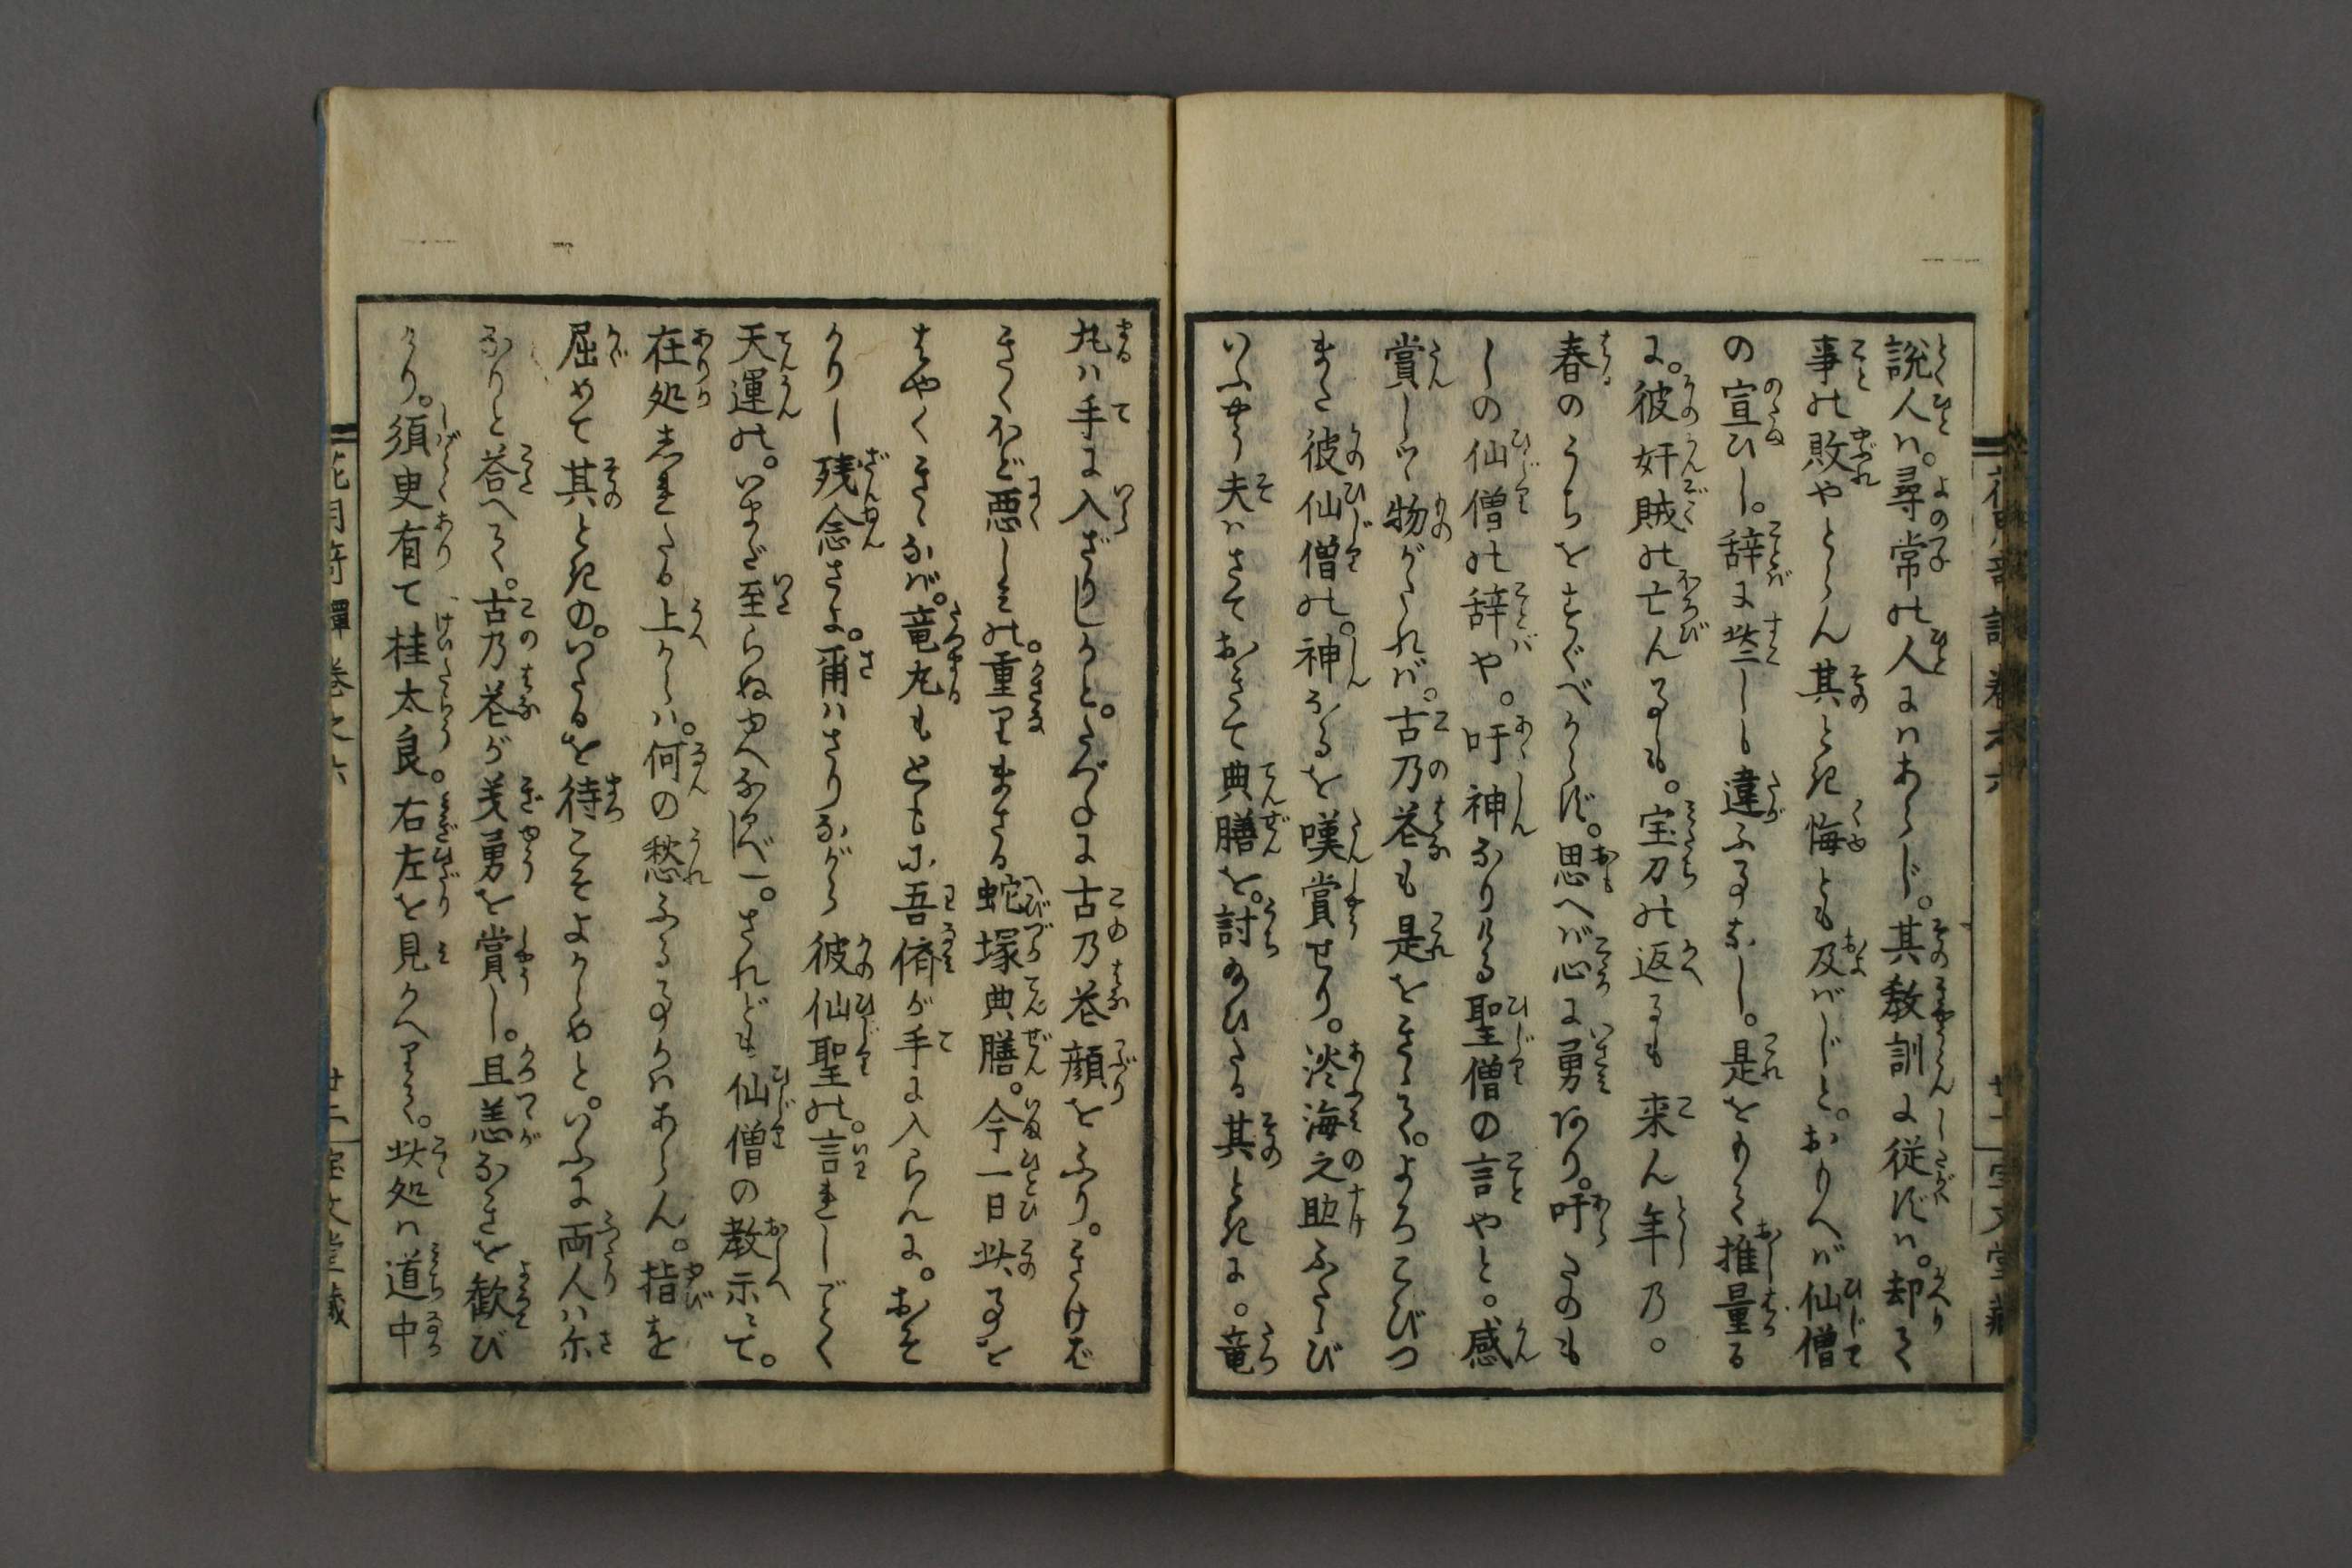 説人ハ。尋常の人にハあらじ。其教訓に従ずハ。却て
事の敗やとならん其とき悔とも及バじと。おもへバ仙僧
の宣ひし。辞に些しも違ふ事なし。是をもて推量る
に。彼奸賊の亡ん事も。宝刀の返るも来ん年乃。
春のうちをすぐべからず。思へバ心に勇あり。吁たのも
しの仙僧の辞や。吁神なりける聖僧の言やと。感
賞しつ物がたれバ。古乃花も是をきゝて。よろこびつ
また彼仙僧の。神なるを嘆賞せり。淡海之助ふたゝび
いふやう夫ハさておきて典膳を。討給ひたる其ときに。竜
丸ハ手に入ざりしかと。たづぬるに古乃花顔をふり。きけバ
きくほど悪しみの。重りまさる蛇塚典膳。今一日此事を
はやくきゝなバ。竜丸もともに吾儕が手に入らんに。おそ
かりし残念さよ。爾ハさりながら彼仙聖の。言れしごとく
天運の。いまだ至らぬゆへなるべし。されども仙僧の教示にて。
在処しれたる上からハ。何の愁ふる事かハあらん。指を
屈めて其ときの。いたるを待こそよからめと。いふに両人ハ尓
なりと答へて。古乃花が義勇を賞し。且恙なきを歓び
けり。須臾有て桂太良。右左を見かへりて。此処ハ道中